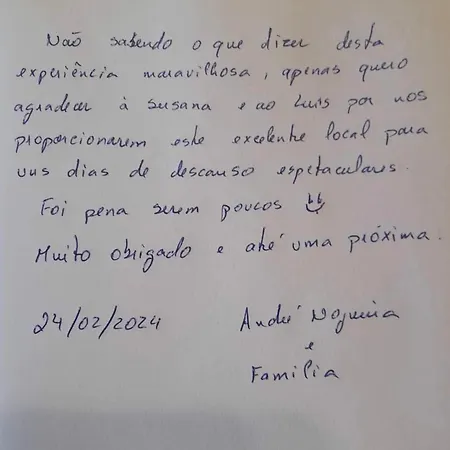 Não sabendo o que dizer desta
experiência maravilhosa, apenas quero
agradecer à Susana e ao Luis por nos
proporcionarem este excelente local para
uns dias de descanso espetaculares.
Foi pena serem poucos
Muito obrigado e até uma próxima.
24/02/2024
André Nogueira
e
Familia